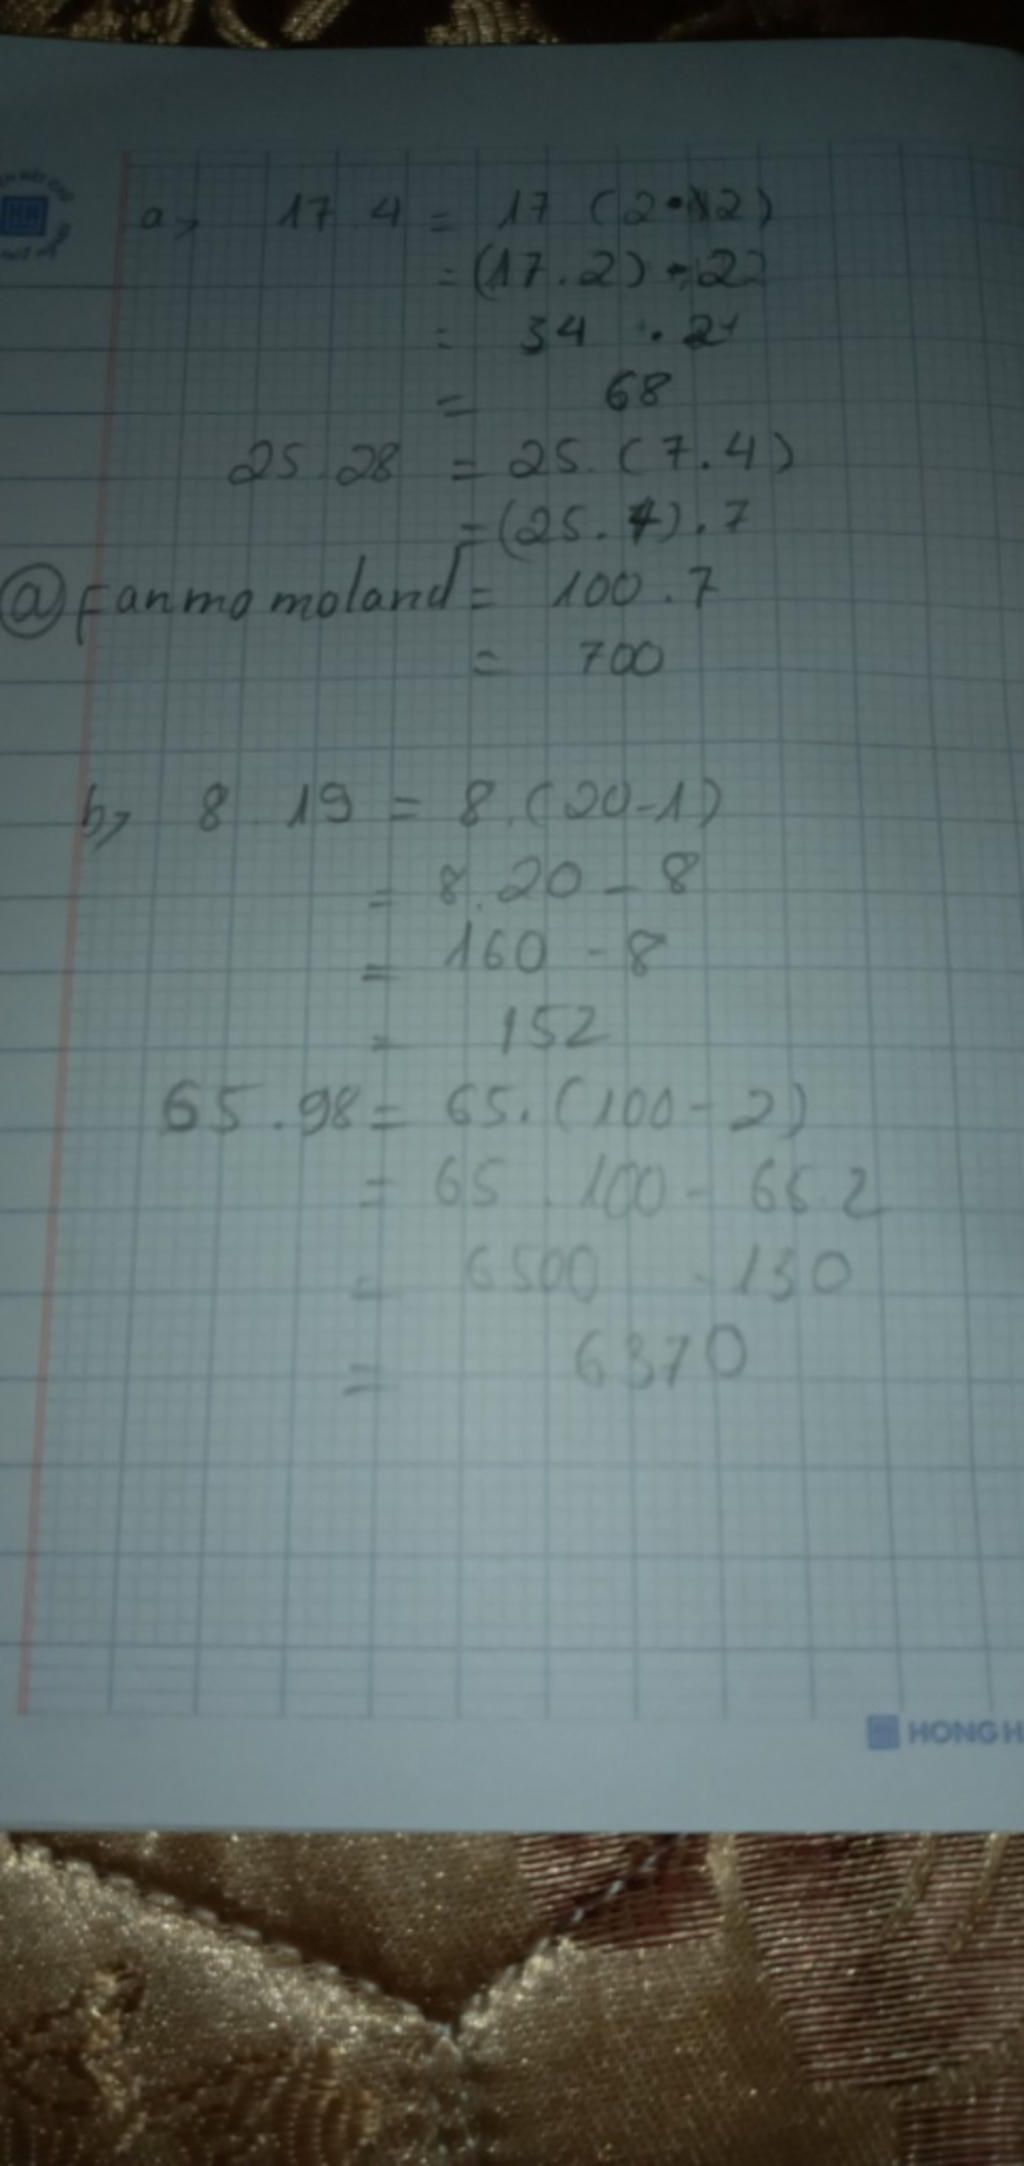 a, 17 4 = 17 (2 . 2)
= (17 . 2) . 2
= 34 . 2
= 68
25 28 = 25. (7.4)
= (25. 4) . 7
@Fanmomoland = 100 . 7
= 700
b, 8 19 = 8.(20-1)
= 8.20 - 8
= 160 - 8
= 152
65.98 = 65.(100-2)
= 65 . 100 - 65.2
= 6500 - 130
= 6370
HONG H